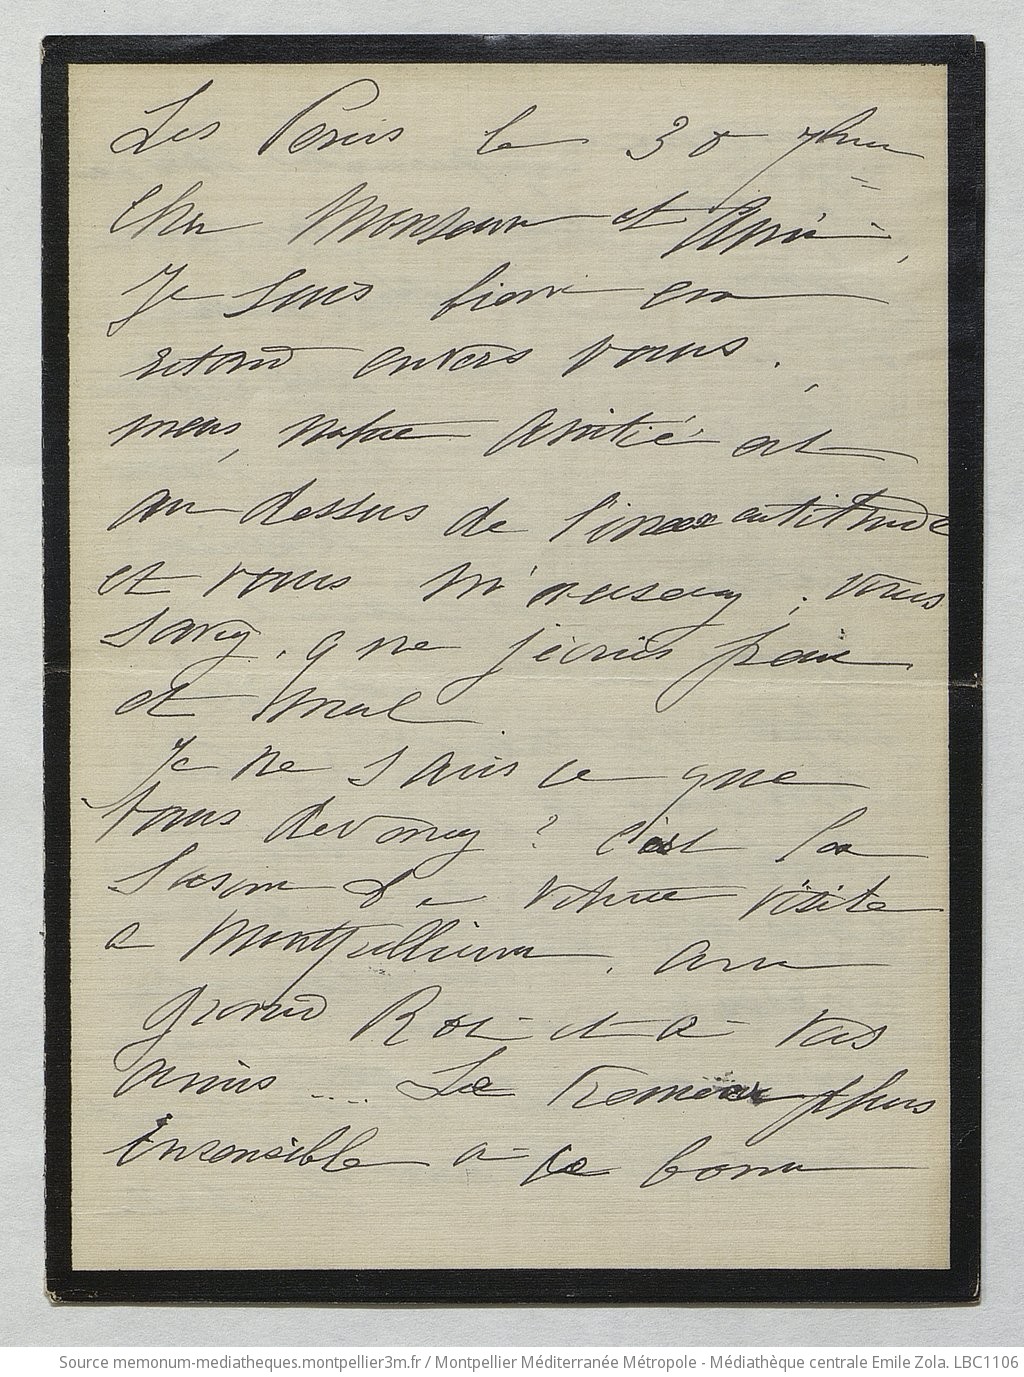 Les Penis le 30 7bre
Cher Monsieur et Ami,
Je suis bien en
retard envers vous.
mais, notre amitié est
au dessus de l'inexactitude
et vous m'excusez ; vous
savez, que j'écris peu
et mal
Je ne sais ce que
vous devenez ? C'est la
saison de votre visite
a Montpellier. au
grand Roi et à vos
amis .... Le plus
insensible à ce bon
Source memonum-mediatheques.montpellier3m.fr / Montpellier Méditerranée Métropole - Médiathèque centrale Emile Zola. LBC1106